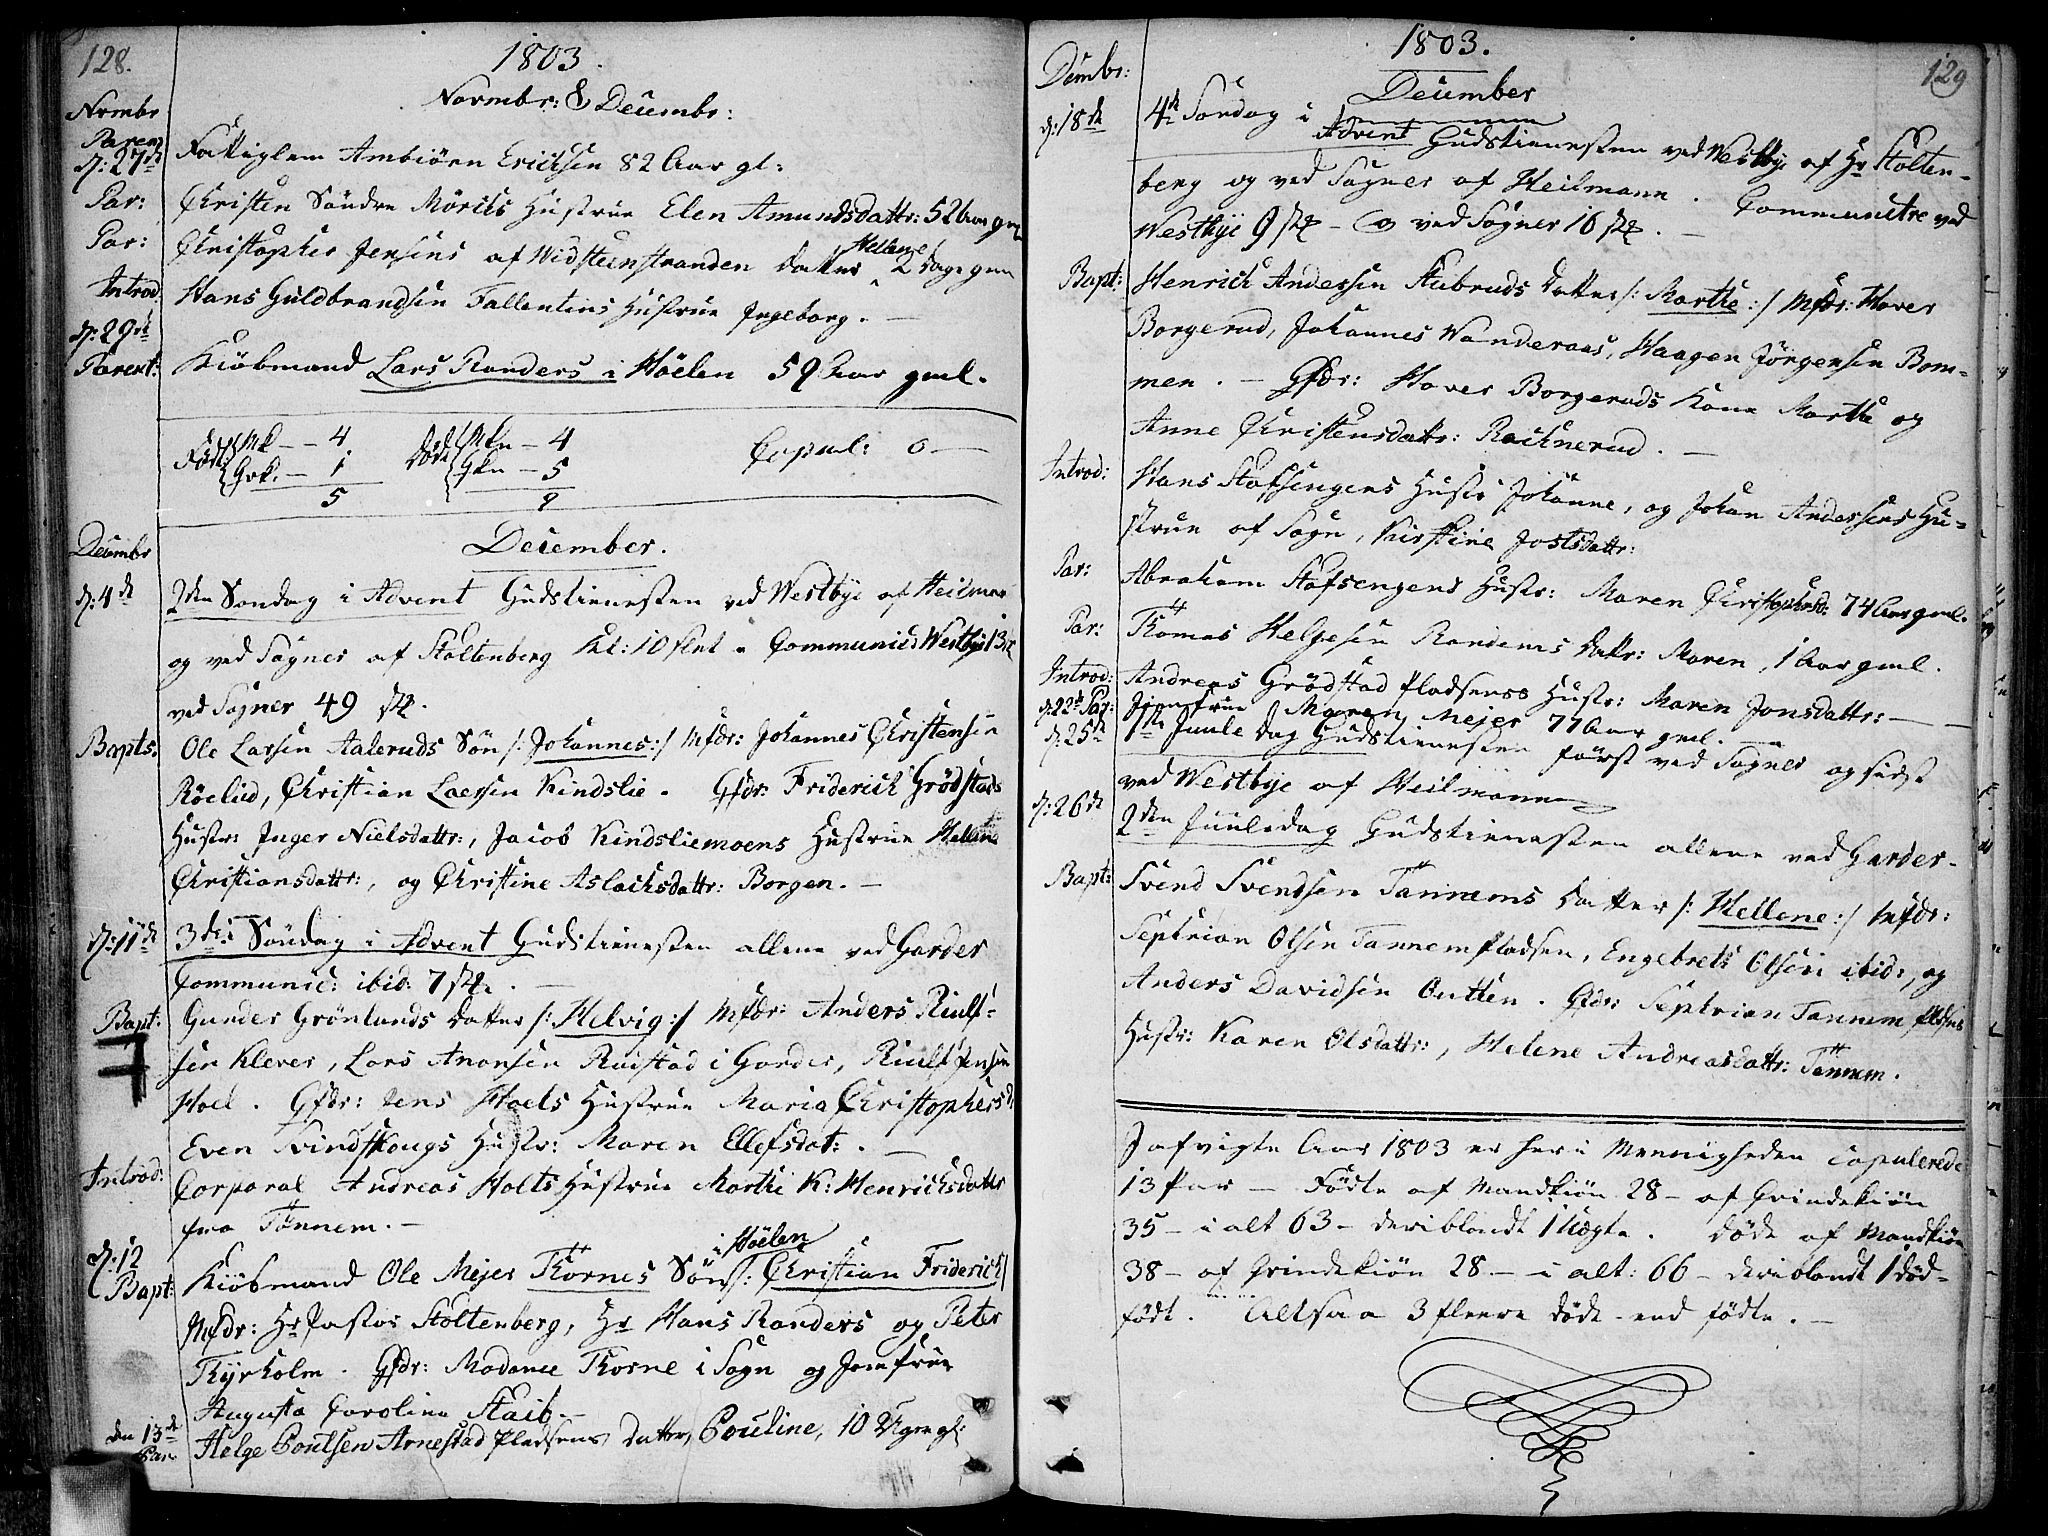 128.
1803.
Novmbr: & Decembr:
Novmbr
Parent
d: 27de Fattiglem Ambiörn Erichsen 82 Aar gl:
Par: Christen Söndre Mörchs Hustrue Elen Amundsdattr: 52 Aar gml
Par: Christopher Jensens af Widsteenstranden Datter Hellene 2 Dage gml
Introd: Hans Guldbrandsen Fallentins Hustrue Ingeborg. —
d: 29de
Parent: Kiöbmand Lars Randers i Höelen 59 Aar gml.
Födt Mk — 4 Döde Mkn — 4 Copul: 0 —
Qvk: — 1 Qkn — 5
5 9
December.
Decembr
d: 4de 2den Söndag i Advent Gudstienesten ved Westbye af Heilman
og ved Sogner af Stoltenberg Kl: 10 slet. Communic: Westbye 13 st
ved Sogner 49 st.
Bapts: Ole Larsen Aaleruds Sön /: Johannes :/ Mfdr: Johannes Christensen
Röelud, Christian Larsen Kindslie. Qfdr: Friderich Grödstads
Hustr: Inger Nielsdattr:, Jacob Kindsliemoens Hustrue Hellene
Christiansdattr:, og Christine Aslachsdattr: Borgen. —
d: 11de 3die Söndag i Advent Gudstienesten allene ved Garder
Communic: ibid: 7 st. —
Bapt: Gunder Grönlunds Datter /: Helvig :/ Mfdr: Anders Riulf-
sen Klever, Lars Anonsen Ruistad i Garder, Riulf Jensen
Hoel. Qfdr: Jens Hoels Hustrue Maria Christophersd:
Even Svindskougs Hustr: Maren Ellefsdat: . —
Introd: Corporal Andreas Holts Hustrue Marthe K: Henrichsdatter
fra Tönnem. —
d: 12
Bapt: Kiöbmand Ole Mejer Thornes i Höelen Sön /: Christian Friderich :/
Mfdr: Hr Pastor Stoltenberg, Hr Hans Randers og Peter
Thyrholm. Qfdr: Madame Thorne i Sogn og Jomfrue
Augusta Carolina Staib. —
den 13de
Par: Helge Poulsen Arnestad Pladsens Datter Pouline, 10 Uger gl:
129
1803.
December
Decmbr:
d: 18de 4de Söndag i Advent Gudstienesten ved Westbye af Hr Stolten-
berg og ved Sogner af Heilmann. Communicere ved
Westbye 9 st — og ved Sogner 16 st. —
Bapt: Henrich Andersen Stubruds Datter /: Marthe :/ Mfdr: Haver
Borgerud, Johannes Wanderaas, Haagen Jörgensen Bom-
men. — Qfdr: Haver Borgeruds Kone Marthe og
Anne Christensdattr: Rachnerud. —
Introd: Hans Stofsengens Hustr: Johanne, og Johan Andersens Hu-
strue af Sogn, Kirstine Jostsdattr:
Par: Abraham Stofsengens Hustr: Maren Christophersd: 74 Aar gml.
Par: Thomas Helgesen Randems Dattr: Maren, 1 Aar gml.
Introd: Andreas Grödstad Pladsens Hustr: Maren Jonsdattr: —
d: 22de Par: Jomfrue Maren Mejer 77 Aar gml. —
d: 25de 1ste Juule Dag Gudstienesten först ved Sogner og sidst
ved Westbye af Heilmann
d: 26de 2den Juuledag Gudstienesten allene ved Garder —
Bapt: Svend Svendsen Tannems Datter /: Hellene :/ Mfdr:
Septrian Olsen Tannem Pladsen, Engebret Olsen ibid:, og
Anders Davidsen Outten. Qfdr: Septrian Tannem Pladsens
Hustr: Karen Olsdattr:, Helene Andreasdattr: Tannem.
I afvigte Aar 1803 er her i Menigheden copulerede
13 Par — Födte af Mandkiön 28 — af Qvindekiön
35 — i alt 63 — deriblandt 1 Uægte. Döde af Mandkiön
38 — af Qvindekiön 28 — i alt: 66 — deriblandt 1 död-
födt. Altsaa 3 fleere döde end födte. —